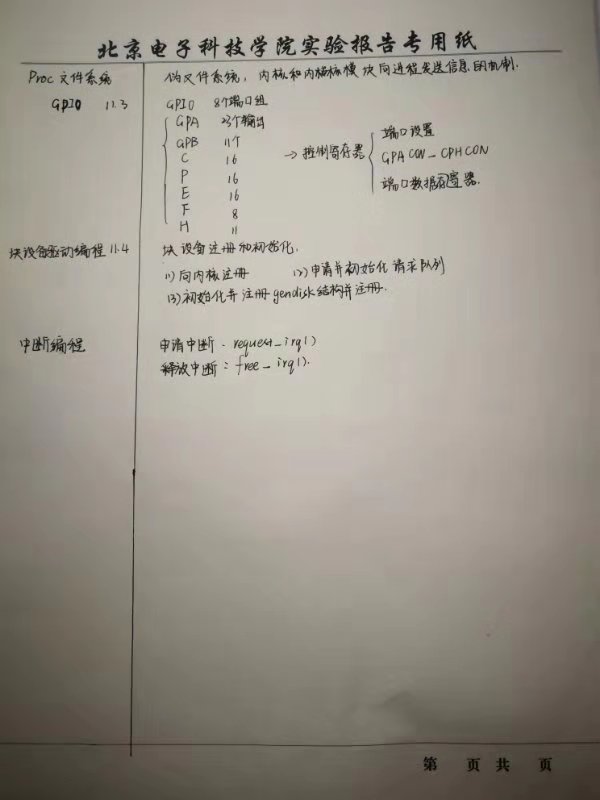 北京电子科技学院实验报告专用纸
Proc 文件系统 伪文件系统,内核和内核模块向进程发送信息的机制.
GPIO 11.3 GPIO 8个端口组
GPA 23个输出
GPB 11个
C 16
P 16
E 16
F 8
H 11
→控制寄存器
端口设置
GPACON-CPHCON
端口数据寄存器.
块设备驱动编程 11.4 块设备注册和初始化.
(1)向内核注册 (2)申请并初始化请求队列
(3)初始化并注册gendisk结构并注册.
中断编程 申请中断:request_irq()
释放中断:free_irq().
第 页 共 页